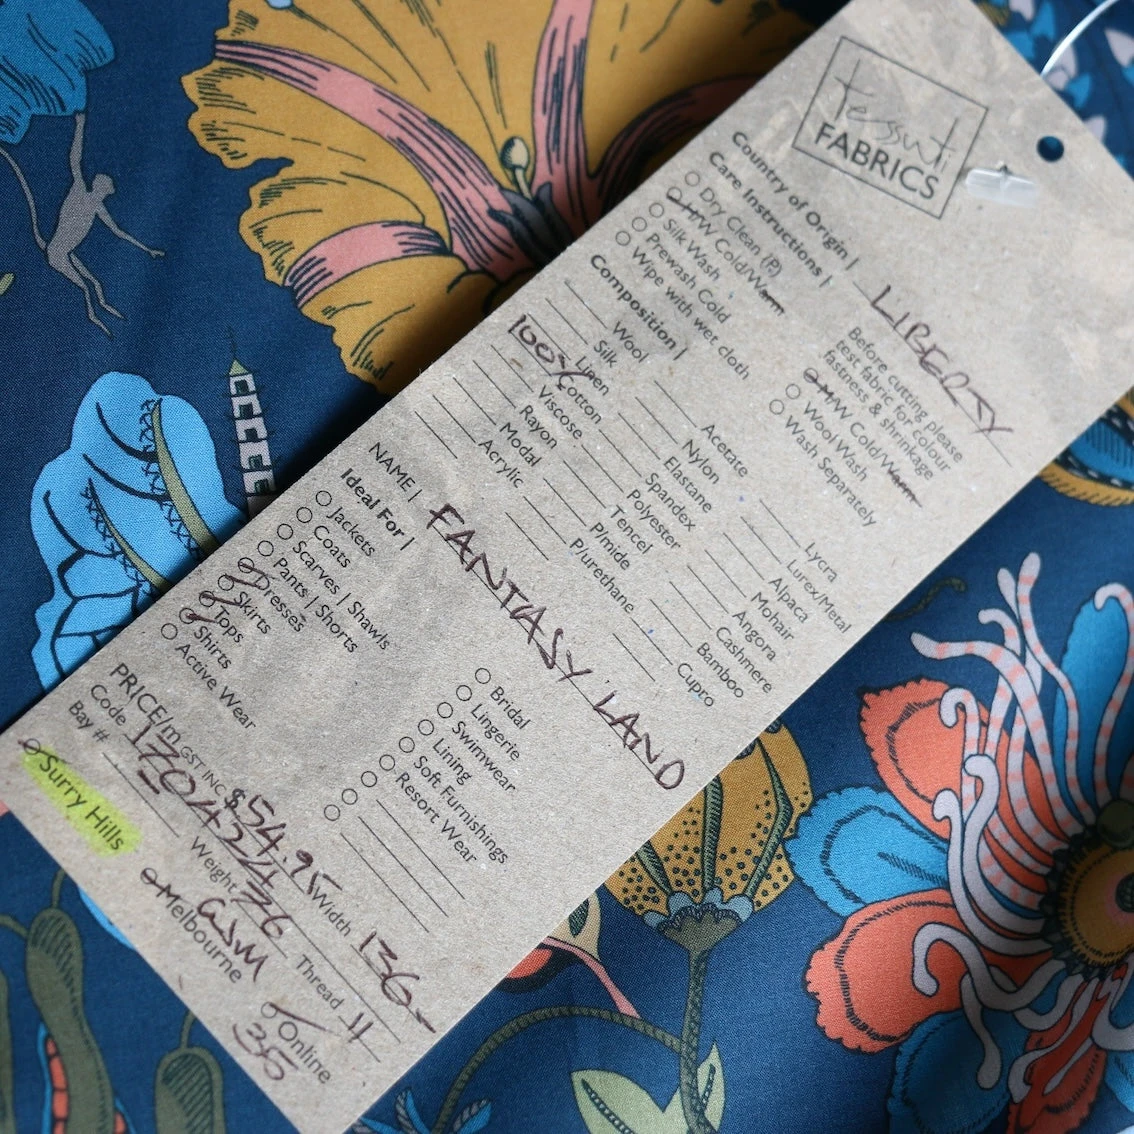 tessuti
FABRICS
Country of Origin | LIBERTY
Care Instructions |
Dry Clean (P)
H/W Cold/Warm
Silk Wash
Prewash Cold
Wipe with wet cloth
Before cutting please
test fabric for colour
fastness & shrinkage
H/W Cold/Warm
Wool Wash
Wash Separately
Composition |
Wool
Silk
Linen
100% Cotton
Viscose
Rayon
Modal
Acrylic
Acetate
Nylon
Elastane
Spandex
Polyester
Tencel
P/mide
P/urethane
Lycra
Lurex/Metal
Mohair
Alpaca
Angora
Cashmere
Bamboo
Cupro
NAME | FANTASY LAND
Ideal For |
Jackets
Coats
Scarves | Shawls
Pants | Shorts
Dresses
Skirts
Tops
Shirts
Active Wear
Bridal
Lingerie
Swimwear
Lining
Soft Furnishings
Resort Wear
PRICE/m GST INC $54.95 Width 136
Code 1704224336
Bay # Weight Thread 11
GSM
Surry Hills
Melbourne
Online
35